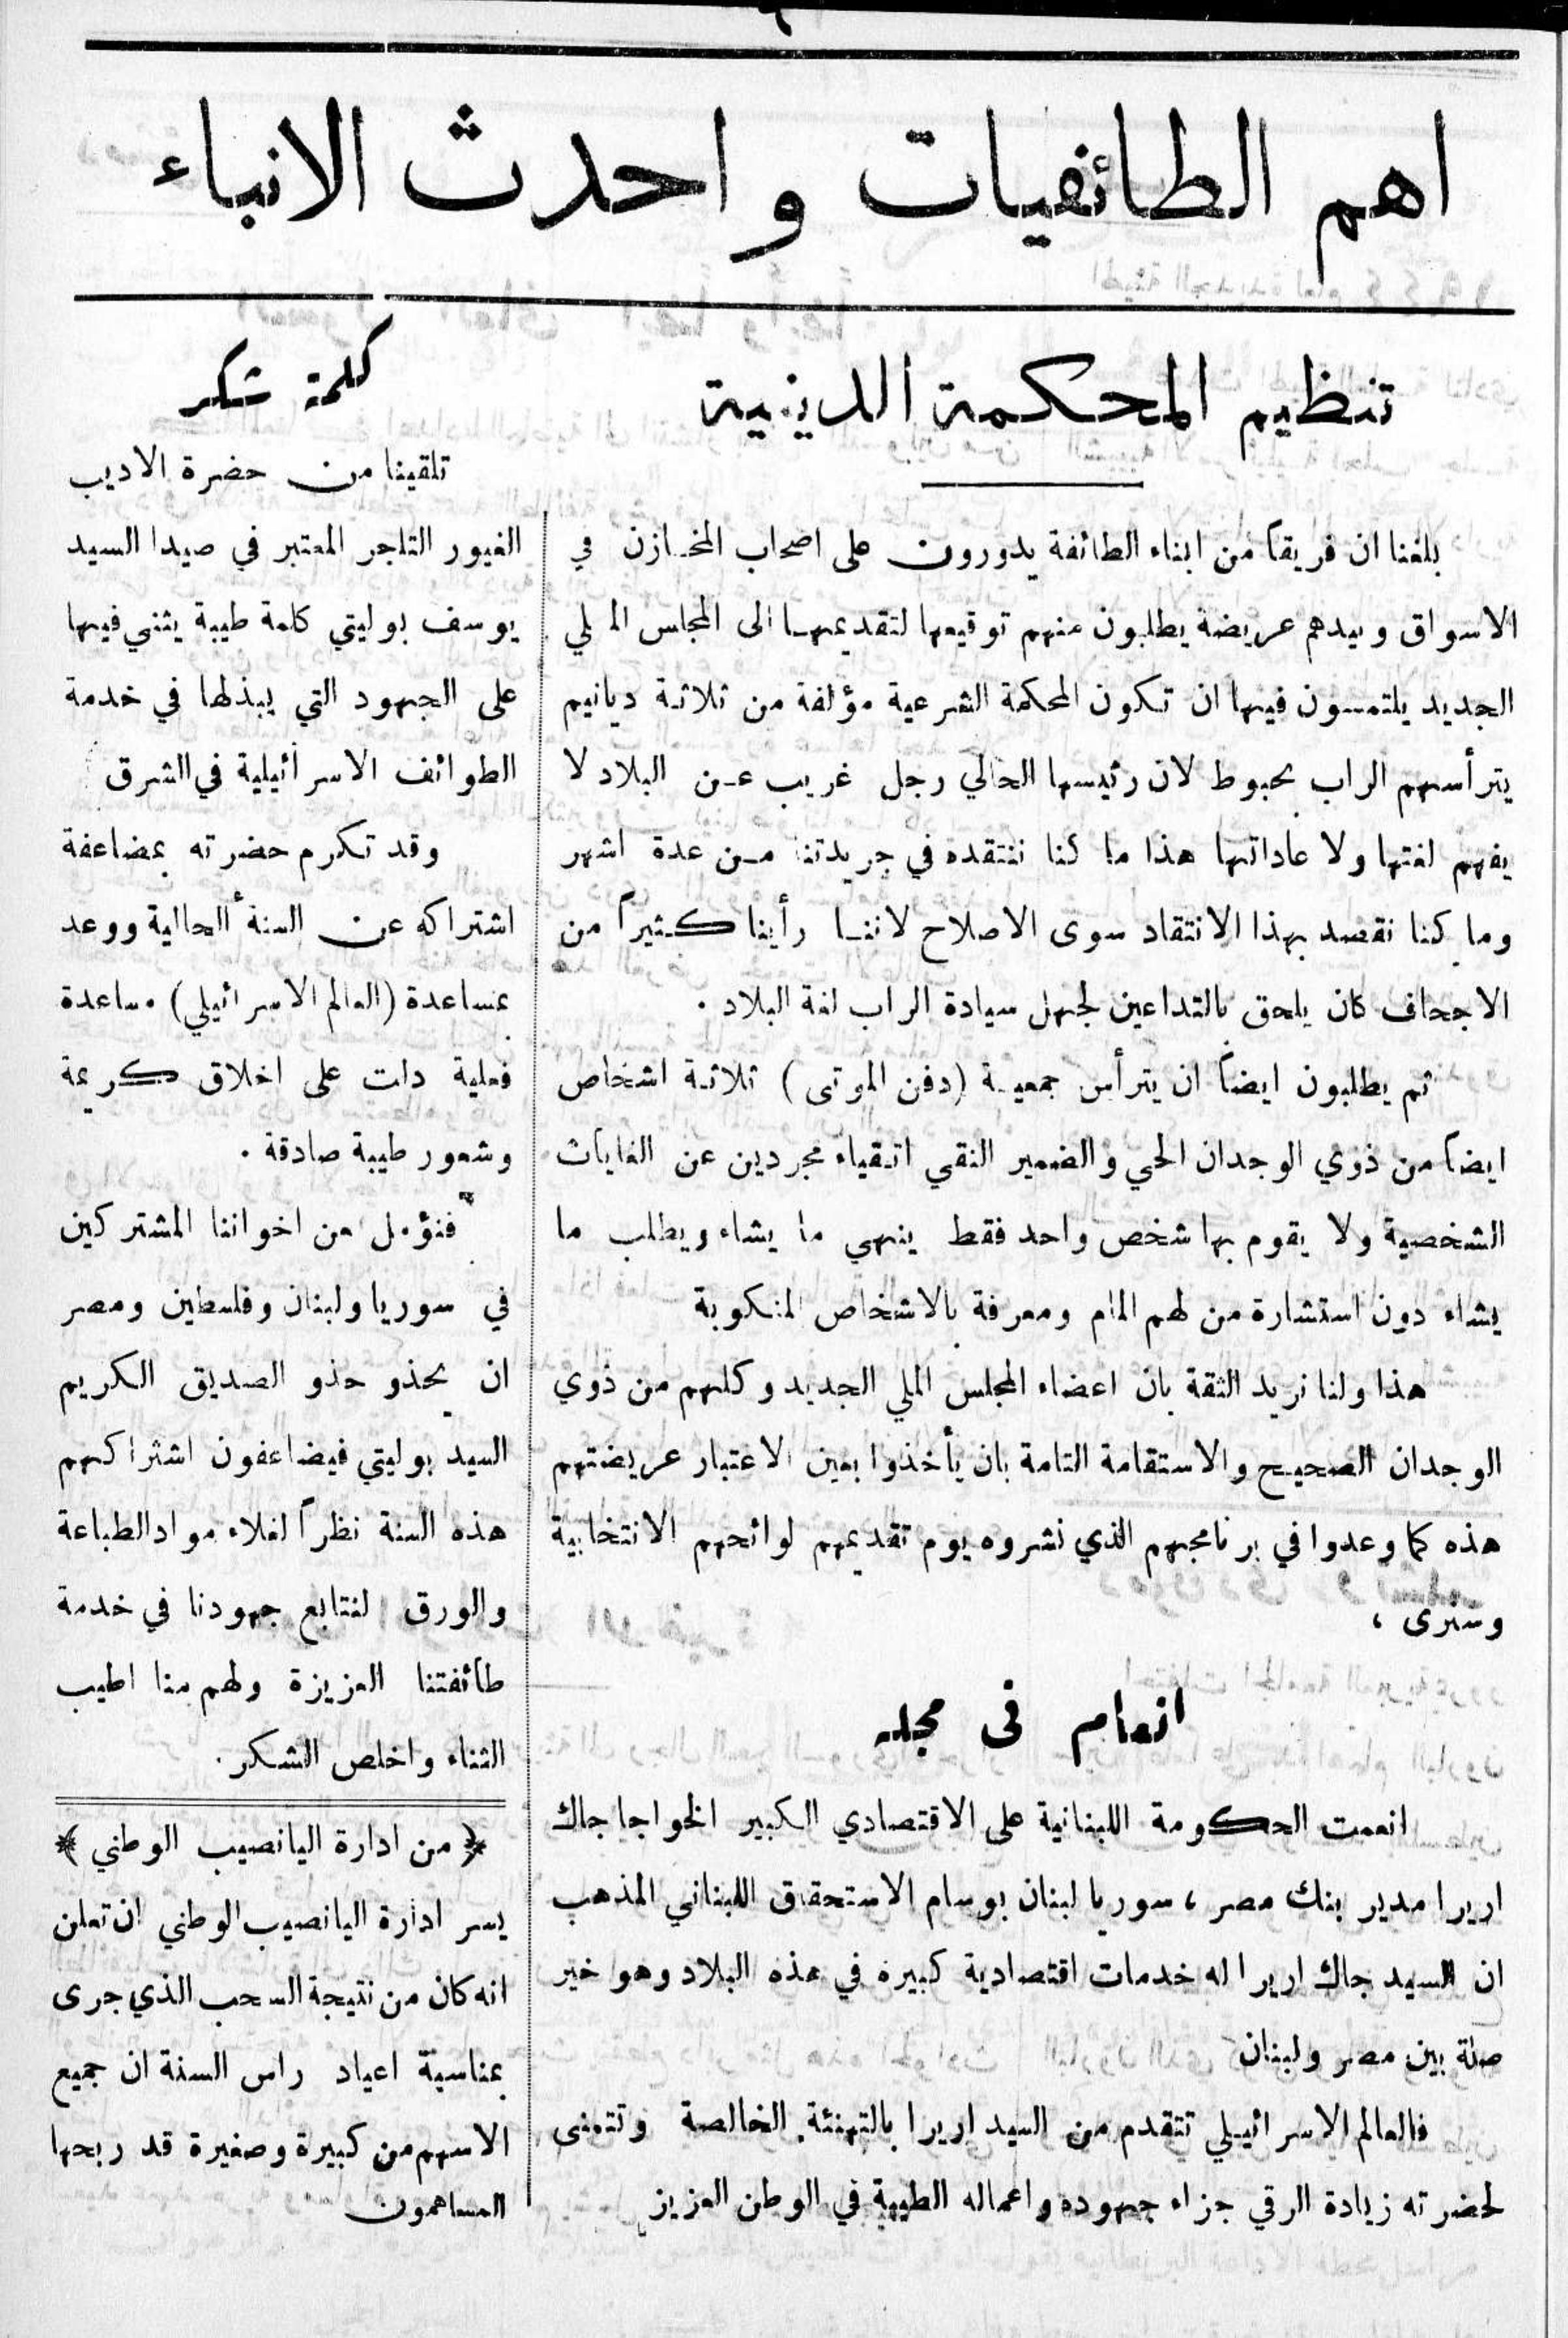 اهم الطائفيات واحدث الانباء
تنظيم المحكمة الدينية
بلغنا ان فريقاً من ابناء الطائفة يدورون على اصحاب المخازن في
الاسواق وبيدهم عريضة يطلبون منهم توقيعها لتقديمها الى المجلس الملي
الجديد يلتمسون فيها ان تكون المحكمة الشرعية مؤلفة من ثلاثة ديانيم
يترأسهم الراب بحبوط لان رئيسها الحالي رجل غريب عن البلاد لا
يفهم لغتها ولا عاداتها هذا ما كنا ننتقده في جريدتنا من عدة اشهر
وما كنا نقصد بهذا الانتقاد سوى الاصلاح لاننا رأينا كثيراً من
الاجحاف كان يلحق بالتداعين لجهل سيادة الراب لغة البلاد .
ثم يطلبون ايضاً ان يترأس جمعية (دفن الموتى) ثلاثة اشخاص
ايضاً من ذوي الوجدان الحي والضمير النقي اتقياء مجردين عن الغايات
الشخصية ولا يقوم بها شخص واحد فقط ينهي ما يشاء ويطلب ما
يشاء دون استشارة من لهم المام ومعرفة بالاشخاص المنكوبة
هذا ولنا نريد الثقة بان اعضاء المجلس الملي الجديد وكلهم من ذوي
الوجدان الصحيح والاستقامة التامة بان يأخذوا بعين الاعتبار عريضتهم
هذه كما وعدوا في برنامجهم الذي نشروه يوم تقديمهم لوائحهم الانتخابية
وسنرى ،
انعام فى محله
انعمت الحكومة اللبنانية على الاقتصادي الكبير الخواجا جاك
اريرا مدير بنك مصر ، سوريا لبنان بوسام الاستحقاق اللبناني المذهب
ان السيد جاك اريرا له خدمات اقتصادية كبيرة في هذه البلاد وهو خير
صلة بين مصر ولبنان
فالعالم الاسرائيلي تتقدم من السيد اريرا بالتهنئة الخالصة وتتمنى
لحضرته زيادة الرقي جزاء جهوده واعماله الطيبة في الوطن العزيز
كلمة شكر
تلقينا من حضرة الاديب
الغيور التاجر المعتبر في صيدا السيد
يوسف بوليتي كلمة طيبة يثني فيها
على الجهود التي يبذلها في خدمة
الطوائف الاسرائيلية في الشرق
وقد تكرم حضرته بمضاعفة
اشتراكه عن السنة الحالية ووعد
بمساعدة (العالم الاسرائيلي) مساعدة
فعلية دلت على اخلاق كريمة
وشعور طيبة صادقة .
فنؤمل من اخواننا المشتركين
في سوريا ولبنان وفلسطين ومصر
ان يحذو حذو الصديق الكريم
السيد بوليتي فيضاعفون اشتراكهم
هذه السنة نظراً لغلاء مواد الطباعة
والورق لنتابع جهودنا في خدمة
طائفتنا العزيزة ولهم منا اطيب
الثناء واخلص الشكر .
﴿ من ادارة اليانصيب الوطني ﴾
يسر ادارة اليانصيب الوطني ان تعلن
انه كان من نتيجة السحب الذي جرى
بمناسبة اعياد راس السنة ان جميع
الاسهم من كبيرة وصغيرة قد ربحها
المساهمون